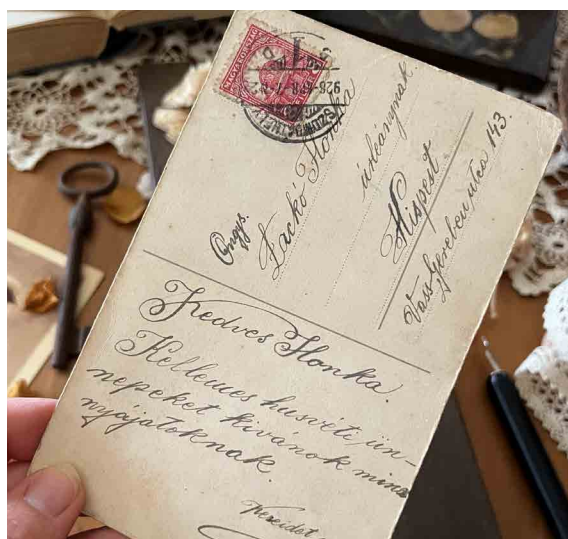 MAGYARORSZÁG
SZOMBATHELY
Öngys.
Lackó Ilonka
úrleánynak.
Kispest
Vass Gereben utca 143.
Kedves Ilonka.
Kellemes husvéti ün-
nepeket kivánok mind
nyájatoknak.